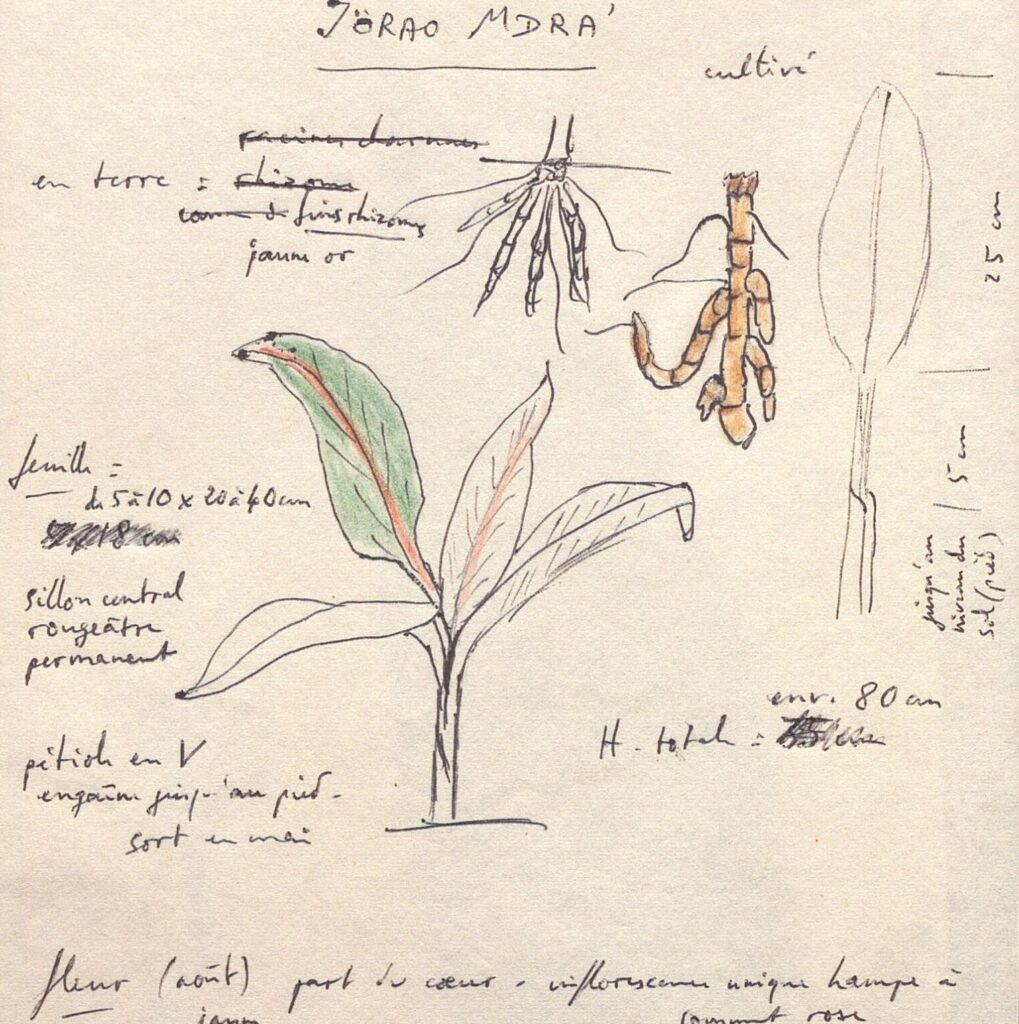 JÖRAO MDRA'
cultivé
racines charnues
en terre = rhizome
comme d fins rhizomes
jaune or
25 cm
feuille =
de 5 à 10 x 20 à 40 cm
18 cm
5 cm
jusqu'au
niveau du
sol (pied)
sillon central
rougeâtre
permanent
env. 80 cm
H. totale =
pétiole en V
engaine jusqu'au pied -
sort en mai
fleur (août) part du cœur - inflorescence unique hampe à
jaune sommet rose